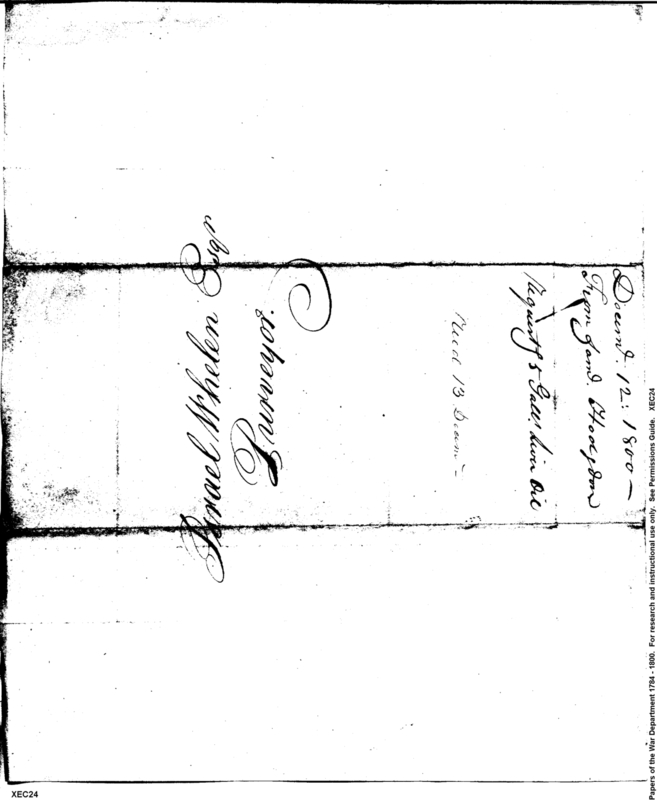 Israel Whelen Esqr
Present
Decemr. 12: 1800 —
From Saml. Hodgdon
Request of 5 Galls. Linn Oil
Recd 13 Decemr —
Papers of the War Department 1784 - 1800. For research and instructional use only. See Permissions Guide. XEC24
XEC24